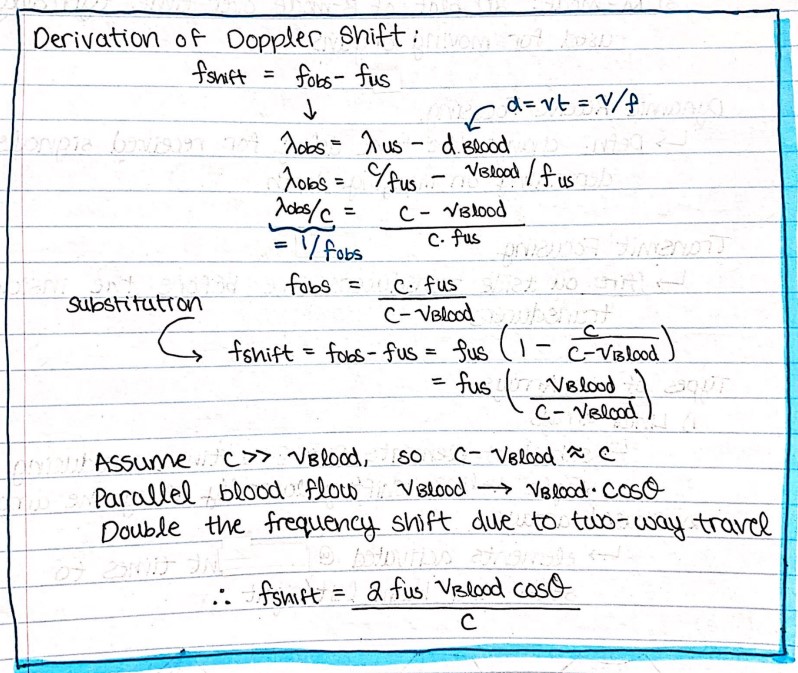 Derivation of Doppler Shift:
fshift = fobs - fus
↓
d = vt = v/f
λobs = λus - d.Blood
λobs = c/fus - vBlood / fus
λobs/c = (c - vBlood) / (c · fus)
= 1/fobs
fobs = (c · fus) / (c - vBlood)
substitution
fshift = fobs - fus = fus (1 - c / (c - vBlood))
= fus (vBlood / (c - vBlood))
Assume c >> vBlood, so c - vBlood ≈ c
Parallel blood flow vBlood → vBlood · cosθ
Double the frequency shift due to two-way travel
∴ fshift = (2 fus vBlood cosθ) / c